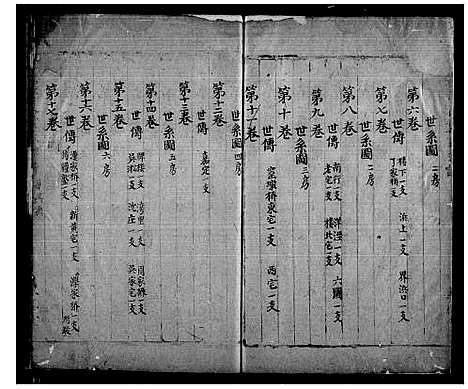 世系圖 二房
第六卷
世傳 樓下一支 浜上一支 界浜口一支
丁家橋一支
第七卷
世系圖 二房
第八卷
世傳 南行一支 洋涇一支 六圖一支
老宅一支 樓北宅一支
第九卷
世系圖 三房
第十卷
世傳 宝瑠橋東宅一支 西宅一支
第十一卷
世系圖 四房
第十二卷
世傳 嘉定一支
第十三卷
世系圖 五房
第十四卷
世傳 灣里一支 周家橋一支
吳淞一支 沈庄一支 吳家宅一支
第十五卷
世系圖 六房
第十六卷
世傳 潘家橋一支 新黃宅一支
第十七卷